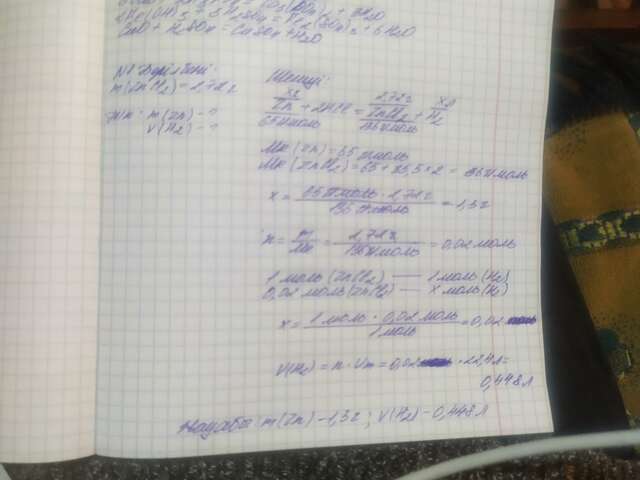 CaO + H2SO4 = CaSO4 + H2O
№1 Берілгені:
m(ZnCl2) = 2,72г
т/к: m(Zn) - ?
V(H2) - ?
Шешуі:
xг 2,72г xл
Zn + 2HCl = ZnCl2 + H2
65г/моль 136г/моль
Mr(Zn) = 65 г/моль
Mr(ZnCl2) = 65 + 35,5 · 2 = 136г/моль
x = 65г/моль · 2,72г / 136 г/моль = 1,3г
n = m / Mr = 2,72г / 136г/моль = 0,02 моль
1 моль (ZnCl2) — 1 моль (H2)
0,02 моль (ZnCl2) — x моль (H2)
x = 1 моль · 0,02 моль / 1 моль = 0,02
V(H2) = n · Vm = 0,02 · 22,4л =
0,448л
Жауабы: m(Zn) - 1,3г ; V(H2) - 0,448л